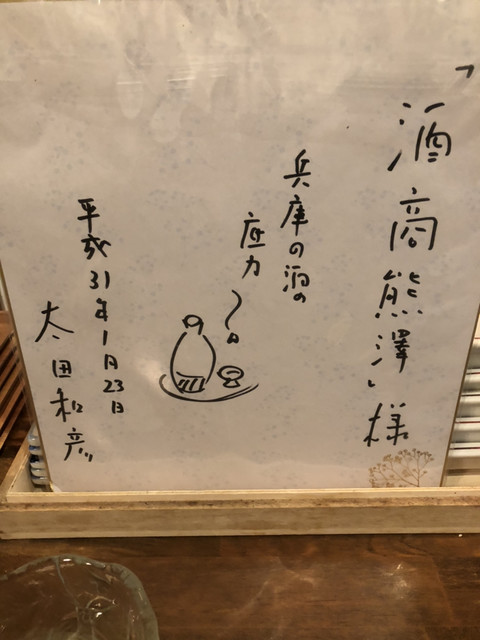 「酒商熊澤」様
兵庫の酒の
底力
平成31年1月23日
太田和彦